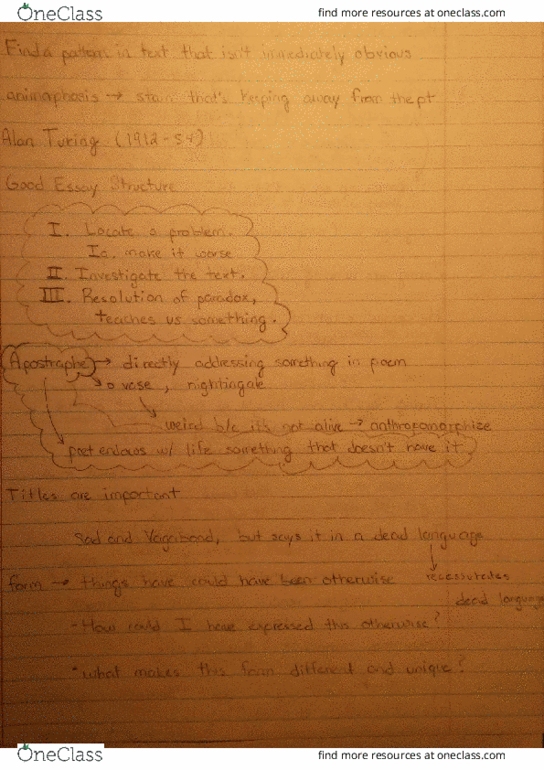 OneClass find more resources at oneclass.com
Find a pattern in text that isn't immediately obvious
animaphosis → stain that's keeping away from the pt
Alan Turing (1912-54)
Good Essay Structure
I. Locate a problem.
Ia. make it worse
II. Investigate the text.
III. Resolution of paradox,
teaches us something.
Apostraphe → directly addressing something in poem
→ o vase, nightingale
weird b/c it's not alive → anthropomorphize
poet endows w/ life something that doesn't have it
Titles are important
Sad and Vagabond, but says it in a dead language
form → things have could have been otherwise
dead language
- How could I have expressed this otherwise?
- what makes this form different and unique?
OneClass find more resources at oneclass.com